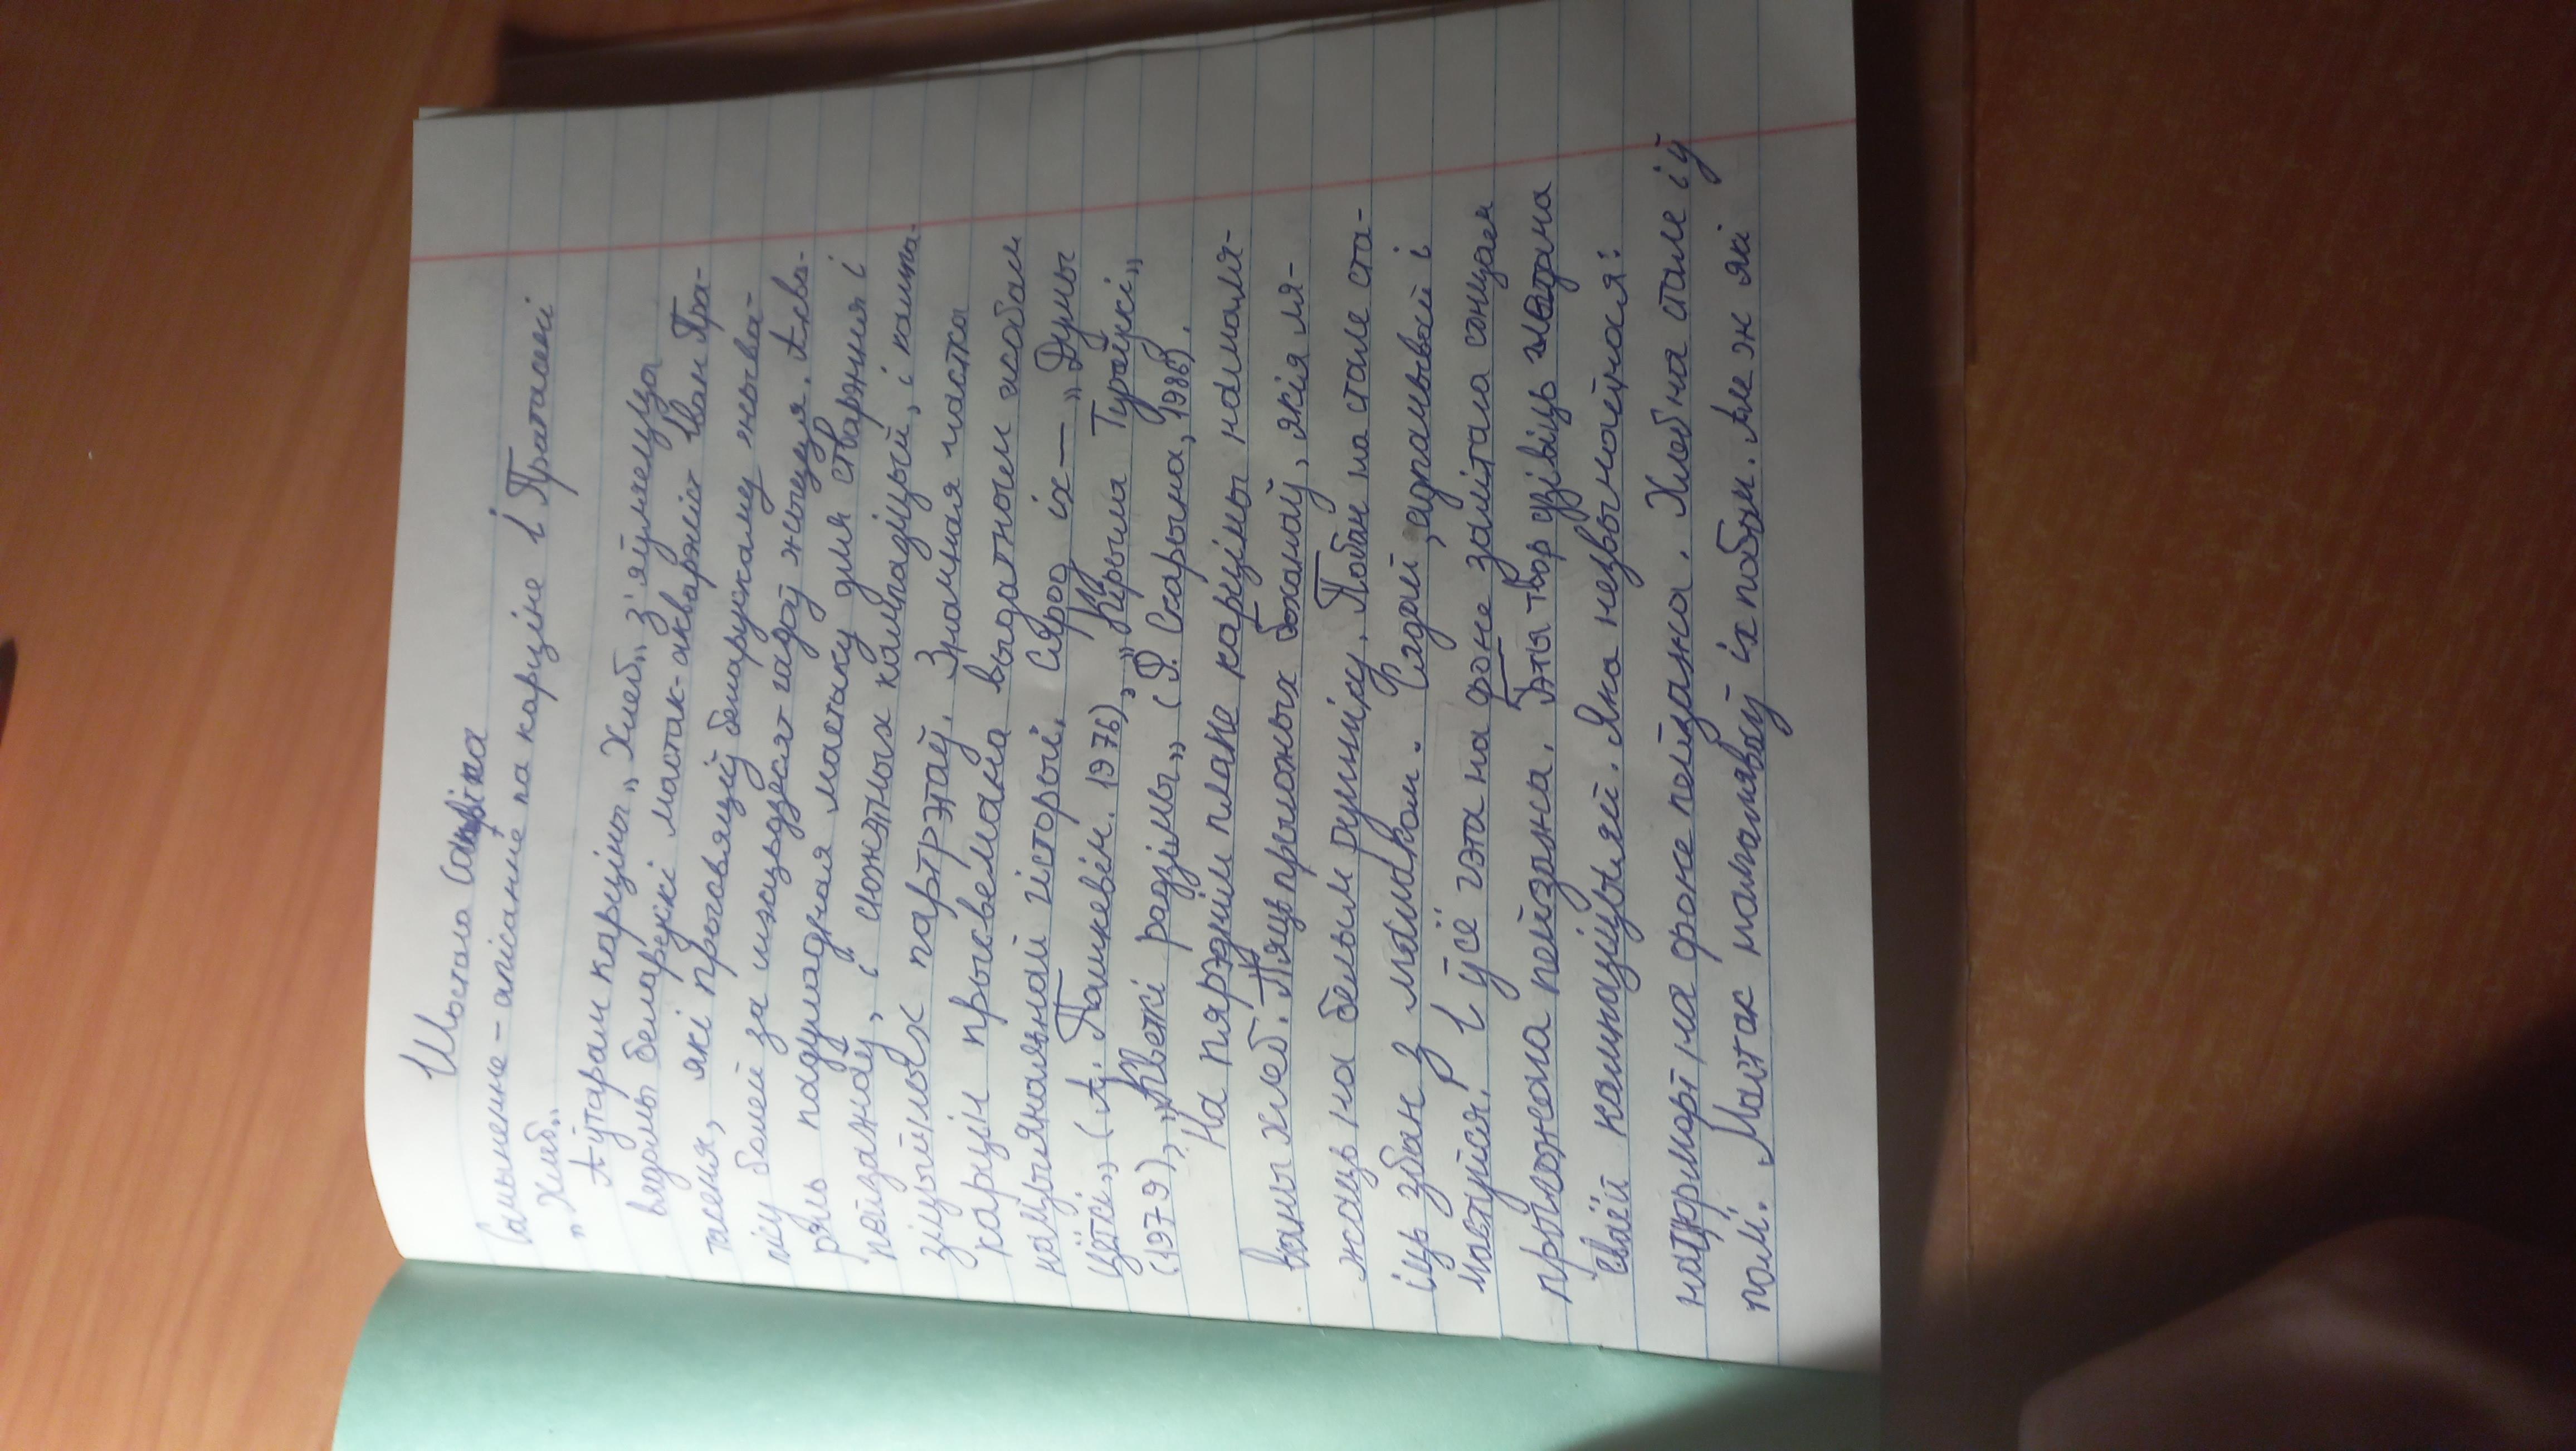 Шыстая Сакавіка
Сачыненне-апісанне па карціне І Пратасені
"Хлеб"
Аўтарам карціны "Хлеб" з'яўляецца
вядомы беларускі мастак-акварэліст Іван Пра-
тасеня, які прысвяціў беларускаму жывапі-
су болей за шэсцьдзесят гадоў жыцця. Аква-
рэль падуладная мастаку для стварэння і
пейзажнау, і сюжэтных кампазіцый, і кампа-
зіцыйных партрэтаў. Значная частка
карцін прысвечана выдатным асобам
нацыянальнай гісторыі. Сярод іх — "Думы
Цёткі" (А. Пашкевіч. 1976), "Кірыла Тураўскі"
(1979), "Кветкі радзімы" (Ф. Скарына, 1986).
На пярэднім плане карціны намаля-
ваны хлеб. Пяць прыгожых боханаў, якія ля-
жаць на белым ручніку. Побач на стале ста-
іць збан з малаком. Сядай, адпачывай і
частуйся. І ўсё гэта на фоне залітага сонцам
прыгожага пейзажа. Гэты твор дзівіць гледача
сваёй кампазіцыяй. Яна незвычайная:
нацюрморт на фоне пейзажа. Хлеб на стале і ў
полі. Мастак намаляваў іх побач. Але ж які